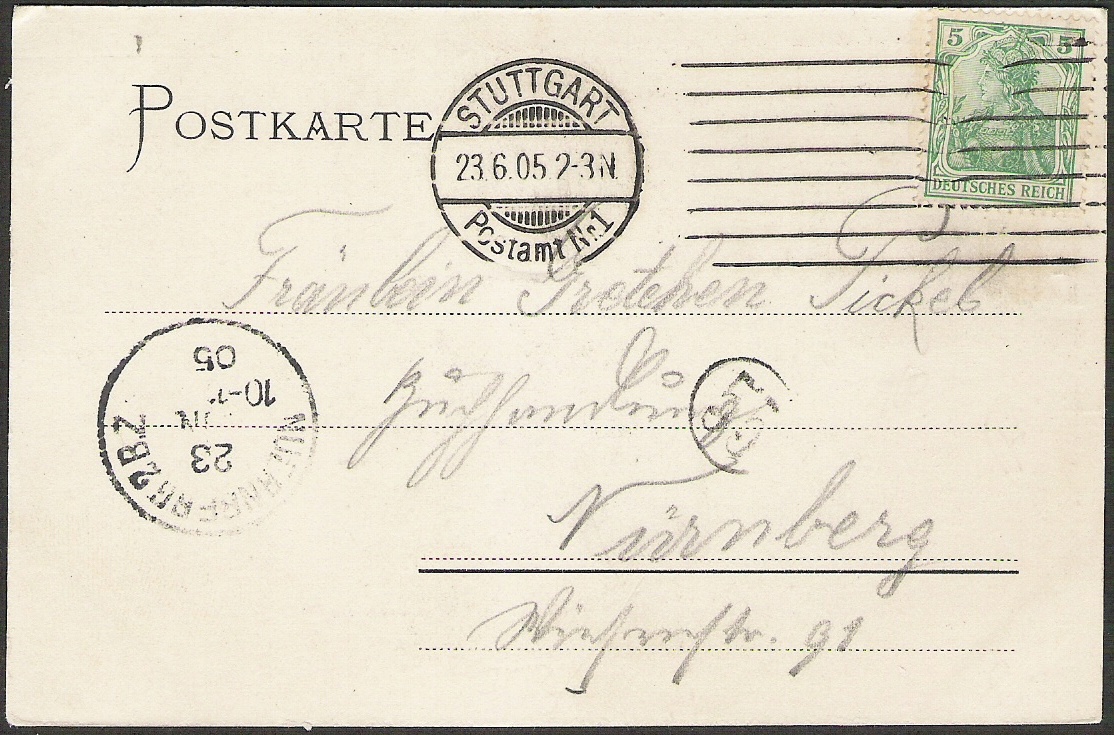 POSTKARTE
STUTTGART
23.6.05.2-3N.
Postamt Nr.1
5 5
DEUTSCHES REICH
Fräulein Gretchen Pickel
NUERNBERG 2BZ
23
JUN
10-11
05
Buchhandlung
55
Nürnberg
91